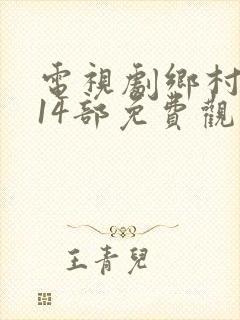 電視劇鄉村
14部免費觀
王青兒